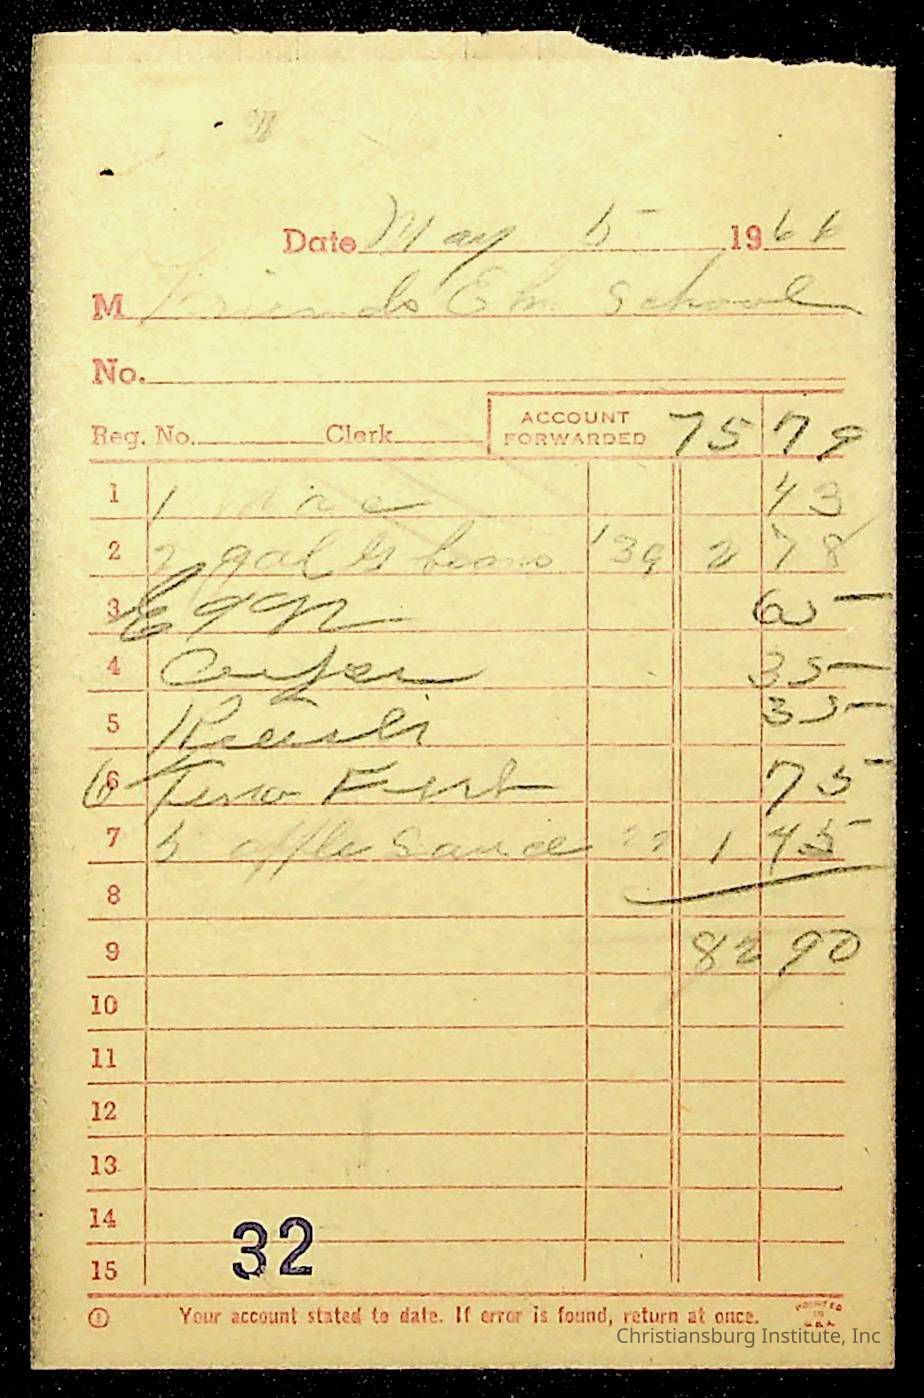 Date May 5 1961
M Friends Elm School
No.
Reg. No. Clerk ACCOUNT FORWARDED 75 79
1 1 43
2 2 gal g beans 1 39 2 78
3 Eggs 65
4 35
5 35
6 6 75
7 5 apple sauce 1 45
8
9 82 90
10
11
12
13
14
15
32
Your account stated to date. If error is found, return at once. PRINTED IN U.S.A.
Christiansburg Institute, Inc